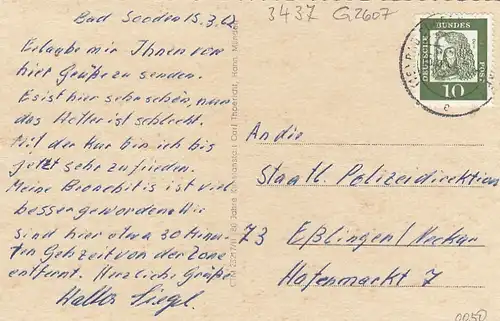 3437 G2607
Bad Sooden 15.3.62
Erlaube mir Ihnen von
hier Grüße zu senden.
Es ist hier sehr schön, nur
das Wetter ist schlecht.
Mit der Kur bin ich bis
jetzt sehr zufrieden.
Meine Bronchitis ist viel
besser geworden. Wir
sind hier etwa 30 Minu-
ten Gehzeit von der Zone
entfernt. Herzliche Grüße
Walter Siegel.
60 Jahre Kunstanstalt Carl Thoericht, Hann. Münden
DEUTSCHE BUNDES POST
10
An die
Staatl. Polizeidirektion
73 Eßlingen/Neckar
Hafenmarkt 7